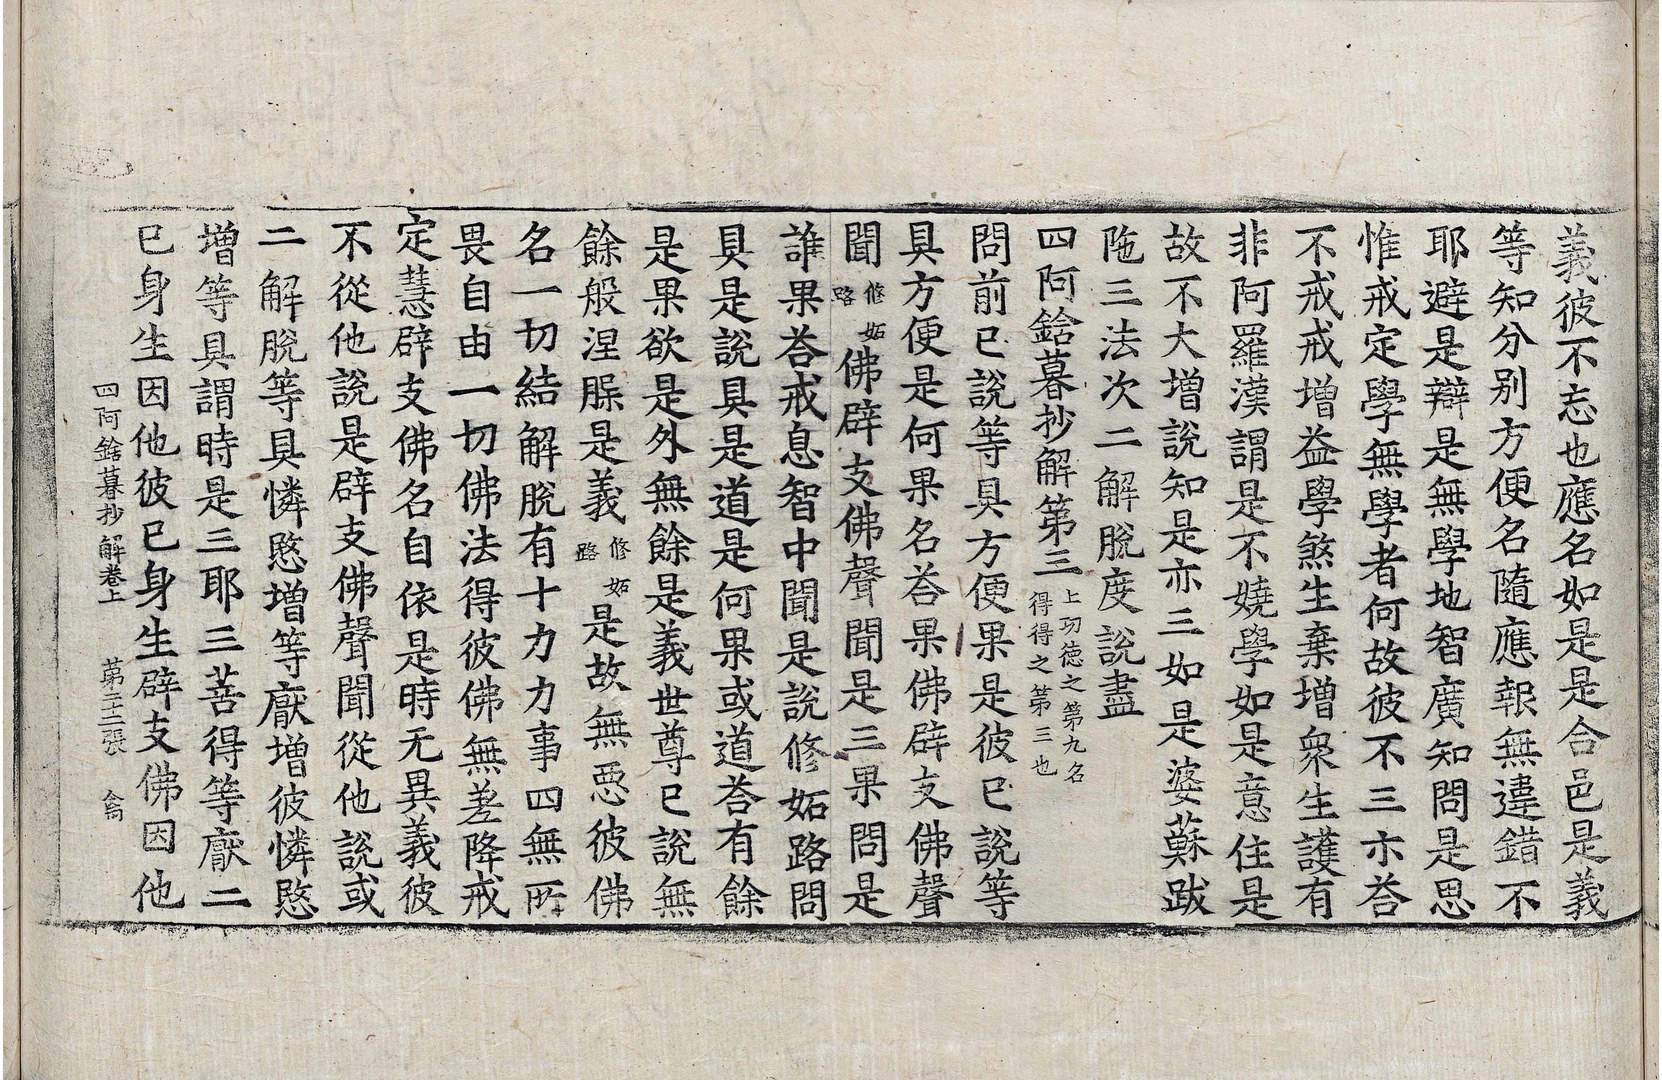 義彼不忘也應名如是是合邑是義
等知分别方便名隨應報無違錯不
耶避是辯是無學地智廣知問是思
惟戒定學無學者何故彼不三亦荅
不戒戒增益學煞生棄增衆生護有
非阿羅漢謂是不嬈學如是意住是
故不大增説知是亦三如是婆蘇跋
陁三法次二解脫度說盡
四阿鋡暮抄解第三
上功徳之第九名
得得之第三也
問前已說等具方便果是彼已說等
具方便是何果名荅果佛辟支佛聲
聞
修妬
路
佛辟支佛聲聞是三果問是
誰果荅戒息智中聞是説修妬路問
具是說具是道是何果或道荅有餘
是果欲是外無餘是義世尊已說無
餘般涅腂是義
修妬
路
是故無惡彼佛
名一切結解脫有十力力事四無所
畏自由一切佛法得彼佛無差降戒
定慧辟支佛名自依是時无異義彼
不從他說是辟支佛聲聞從他說或
二解脫等具憐愍增等厭增彼憐愍
增等具謂時是三耶三菩得等厭二
已身生因他彼已身生辟支佛因他
四阿鋡暮抄解卷上 第二十二張 禽